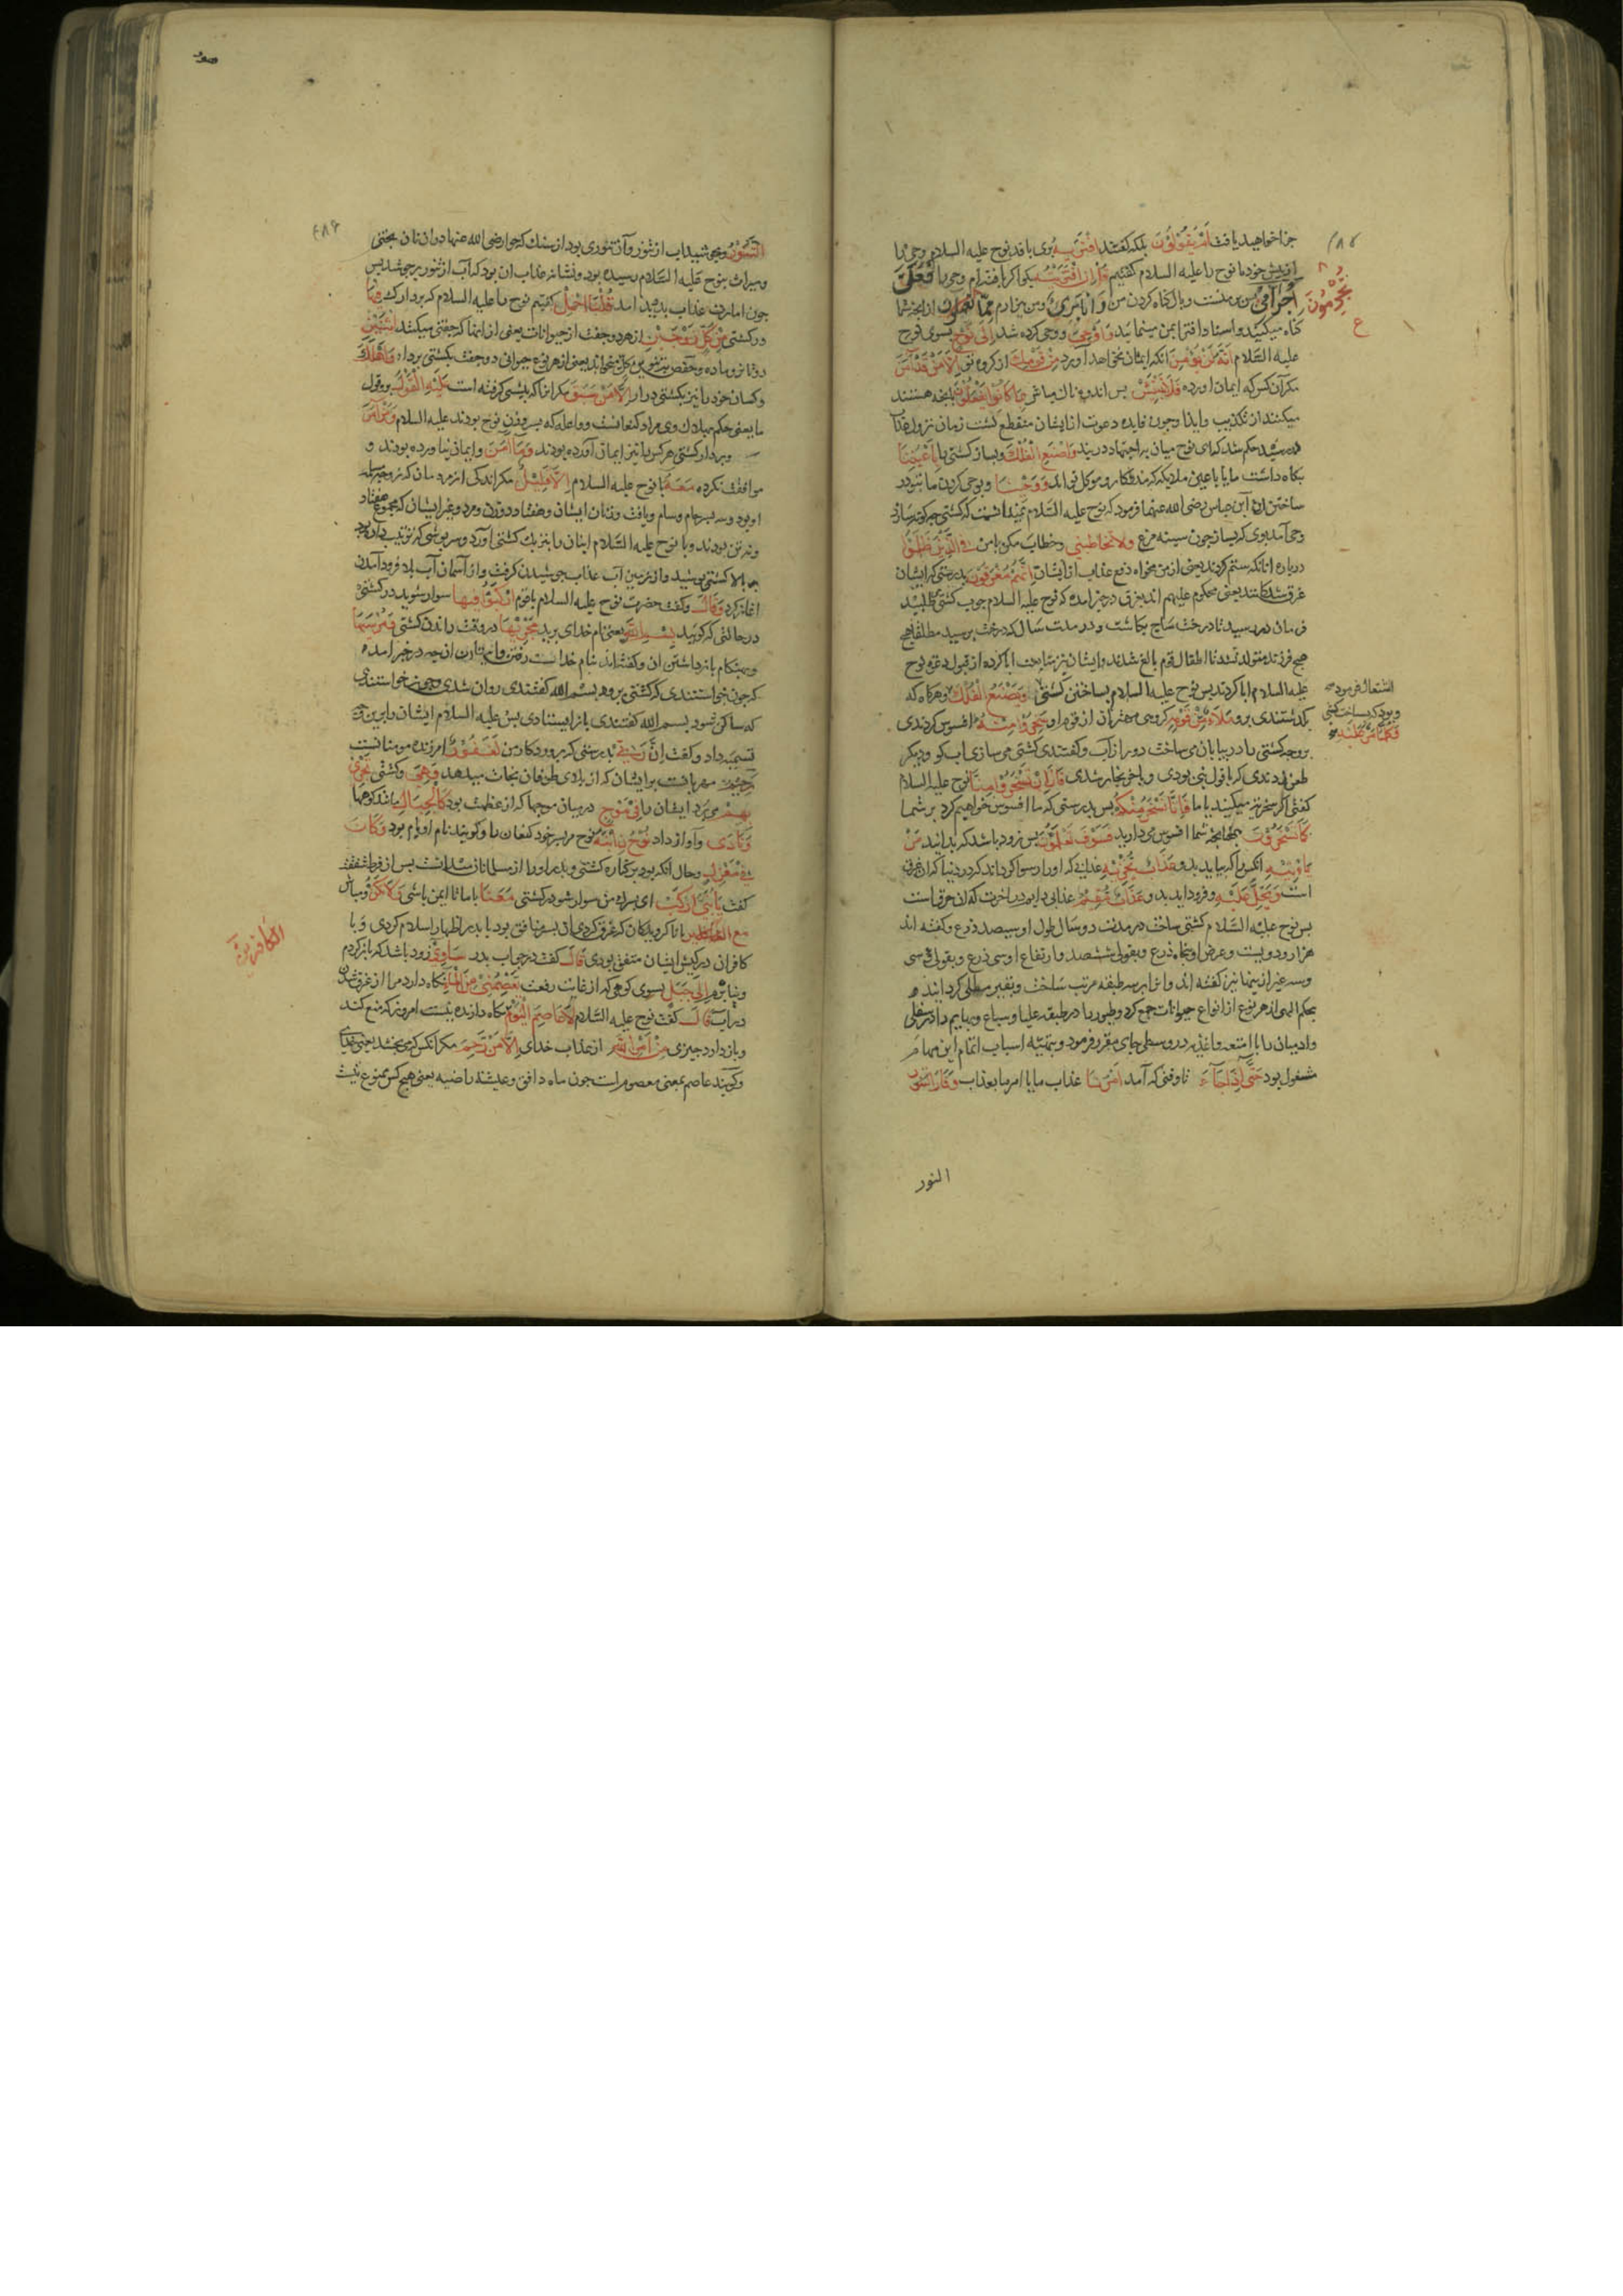 جزا خواهید یافت اَمْ یَقُوْلُوْنَ بلکه گفتند افْتَرٰیهُ نوح علیه السلام وحی را
از پیش خود ما نوح را علیه السلام گفتیم قُلْ اِنِ افْتَرَیْتُهُ بگو اگر بافته‌ام وحی را فَعَلَیَّ
اِجْرَامِیْ پس بر منست وبال گناه کردن من وَاَنَا بَرِیْءٌ و من بیزارم مِمَّا تُجْرِمُوْنَ از انچه شما
گناه میکنید و اسناد افترا بمن مینمائید وَاُوْحِیَ و وحی کرده شد اِلٰی نُوْحٍ بسوی نوح
علیه السّلام اَنَّهُ لَنْ یُؤْمِنَ انکه ایمان نخواهد آورد مِنْ قَوْمِكَ از گروه تو اِلَّا مَنْ قَدْ اٰمَنَ
مگر آن کس که ایمان اورده فَلَا تَبْتَئِسْ پس اندوهناك مباش بِمَا كَانُوْا یَفْعَلُوْنَ بانچه هستند
میکنند از تکذیب و ایذا و چون فایده دعوت از ایشان منقطع گشت زمان نزول عذاب
حکم شد که ای نوح میان بر اجتهاد در بند وَاصْنَعِ الْفُلْكَ و بساز کشتی را بِاَعْیُنِنَا
بنگاه داشت ما یا باعین ملایکه که مددکار و موکل تواند وَوَحْیِنَا و بوحی کردن ما بتو در
ساختن ان ابن عباس رضی الله عنهما فرمود که نوح علیه السّلام نمیدانست که کشتی چگونه سازد
وحی آمد بوی که بساز چون سینه مرغ وَلَا تُخَاطِبْنِیْ و خطاب مکن با من فِی الَّذِیْنَ ظَلَمُوْا
درباره انانکه ستم کردند یعنی از من مخواه دفع عذاب از ایشان اِنَّهُمْ مُغْرَقُوْنَ بدرستی که ایشان
غرق شدکانند یعنی محکوم علیهم اند بغرق در خبر امده که نوح علیه السلام چوب کشتی طلبید
فرمان در رسید تا درخت ساج بکاشت و در مدت سال که درخت برسید مطلقا هیچ
هیچ فرزند متولد نشد تا اطفال قوم بالغ شدند و ایشان نیز متابعت ابا کرده از قبول دعوت نوح
علیه السلام ابا کردند پس نوح علیه السلام بساختن کشتی وَیَصْنَعُ الْفُلْكَ و هرکاه که
بگذشتندی برو مَلَأٌ مِّنْ قَوْمِهٖ گروهی مهتران از قوم او سَخِرُوْا مِنْهُ افسوس کردندی
بر وجه کشتی را در بیابان می ساخت دور از آب و گفتندی کشتی می سازی اب کو و دیگر
طعن زدندی که باول نبی بودی و باخر نجار شدی قَالَ اِنْ تَسْخَرُوْا مِنَّا نوح علیه السلام
گفتی اگر سخریه میکنید با ما فَاِنَّا نَسْخَرُ مِنْكُمْ پس بدرستی که ما افسوس خواهیم کرد بر شما
كَمَا تَسْخَرُوْنَ همچنانچه شما افسوس می دارید فَسَوْفَ تَعْلَمُوْنَ پس زود باشد که بدانید مَنْ
یَاْتِیْهِ انکس را که بیاید بدو عَذَابٌ یُخْزِیْهِ عذابی که او را رسوا گرداند در دنیا که ان غرق
است وَیَحِلُّ عَلَیْهِ و فرود اید بدو عَذَابٌ مُقِیْمٌ عذابی دایم در اخرت که ان حرقست
پس نوح علیه السّلام کشتی ساخت در مدت دو سال طول او سیصد ذرع و گفته اند
هزار و دویست و عرض او پنجاه ذرع و بقولی ششصد و ارتفاع او سی ذرع و بقولی سی
و سه غیر از اینها نیز گفته اند و انرا بر سه طبقه مرتب ساخت و بقیر مطلی گردانید
بحکم الهی از هر نوع از انواع حیوانات جمع کرد و طیور را در طبقه علیا و سباع و بهایم را در سفلی
و ادمیان را با امتعه و اغذیه در وسطی جای مقرر فرمود و بتهیه اسباب اتمام این مهام
مشغول بود حَتّٰی اِذَا جَاءَ تا وقتی که آمد اَمْرُنَا عذاب ما یا امر ما بعذاب وَفَارَ التَّنُّوْرُ
تُجْرِمُوْنَ
ع
اشتغال فرمود
و بود که بساخت کشتی
وَكُلَّمَا مَرَّ عَلَیْهِ
النور
التَّنُّوْرُ و بجوشید اب از تنور و آن تنوری بود از سنك که حوا رضی الله عنها دران نان پختی
و میراث بنوح علیه السّلام رسیده بود و نشانه عذاب ان بود که آب از تنور برجوشد پس
چون امارت عذاب پدید امد قُلْنَا احْمِلْ گفتیم نوح را علیه السلام که بردار فِیْهَا
در کشتی مِنْ كُلٍّ زَوْجَیْنِ از هر دو جفت از حیوانات یعنی از اینها که جفتی میکنند اثْنَیْنِ
دو تا نر و ماده و حفص بتنوین کل میخواند یعنی از هر نوع حیوانی دو جفت بکشتی بردار وَاَهْلَكَ
و کسان خود را نیز بکشتی درار اِلَّا مَنْ سَبَقَ مگر انرا که پیشی گرفته است عَلَیْهِ الْقَوْلُ برو قول
ما یعنی حکم بهلاك وی مراد کنعانست و واعله که پسر و زن نوح بودند علیه السلام وَمَنْ اٰمَنَ
و بردار در کشتی هر کس را نیز ایمان آورده بودند وَمَا اٰمَنَ و ایمان نیاورده بودند و
موافقت نکرده مَعَهُ با نوح علیه السلام اِلَّا قَلِیْلٌ مگر اندکی از مردمان که زوجه مسلمه
او بود و سه پسر حام و سام و یافث و زنان ایشان و هفتاد و دو تن مرد و زن غیر ایشان که مجموع هفتاد
و نه تن بودند و با نوح علیه السّلام اینان را بنزدیك کشتی آورد و سرپوشی که ترتیب داده بود
بر بالا کشتی پوشید و از زمین آب عذاب جوشیدن گرفت و از آسمان آب بلا فرود آمدن
اغاز کرد وَقَالَ و گفت حضرت نوح علیه السلام با قوم ارْكَبُوْا فِیْهَا سوار شوید در کشتی
در حالتی که گوئید بِسْمِ اللهِ یعنی نام خدای برید مَجْرٖیهَا در وقت راندن کشتی وَمُرْسٰیهَا
و هنگام بازداشتن ان و گفته‌اند بنام خداست رفتن و ایستادن ان چه در خبر امده
که چون خواستندی که کشتی برود بسم الله گفتندی روان شدی و چون خواستندی
که ساکن شود بسم الله گفتندی باز ایستادی پس علیه السلام ایشان را برین وجه
تسمیه داد و گفت اِنَّ رَبِّیْ بدرستی که پروردگار من لَغَفُوْرٌ امرزنده مومنانست
رَحِیْمٌ مهربانست بر ایشان که از بلای طوفان نجات میدهد وَهِیَ و کشتی تَجْرِیْ
بِهِمْ می برد ایشان را فِیْ مَوْجٍ در میان موجها که از عظمت بود كَالْجِبَالِ مانند کوهها
وَنَادٰی و آواز داد نُوْحُ ابْنَهُ نوح مر پسر خود کنعان را و گویند نام او یام بود وَكَانَ
فِیْ مَعْزِلٍ و حال انکه بود بر کناره کشتی و پدر او را از مسلمانان میدانست پس از فرط شفقت
گفت یَا بُنَیَّ ارْكَبْ ای پسرك من سوار شو در کشتی مَعَنَا با ما تا ایمن باشی وَلَا تَكُنْ و مباش
مَعَ الْكَافِرِیْنَ با ناگرویدگان که غرق گردی ان پسر منافق بود با پدر اظهار اسلام کردی و با
کافران در کیش ایشان متفق بودی قَالَ گفت در جواب پدر سَاٰوِیْ زود باشد که باز گردم
و پناه برم اِلٰی جَبَلٍ بسوی کوهی که از غایت رفعت یَعْصِمُنِیْ مِنَ الْمَاءِ نگاه دارد مرا از غرق شدن
در آب قَالَ گفت نوح علیه السّلام لَا عَاصِمَ الْیَوْمَ نگاه دارنده نیست امروز که منع کند
و باز دارد چیزی مِنْ اَمْرِ اللهِ از عذاب خدای اِلَّا مَنْ رَحِمَ مگر انکس که می بخشد یعنی خدای
و گویند عاصم بمعنی معصوم است چون ماء دافق و عیشة راضیه یعنی هیچ کس ممنوع نیست
الكافرین